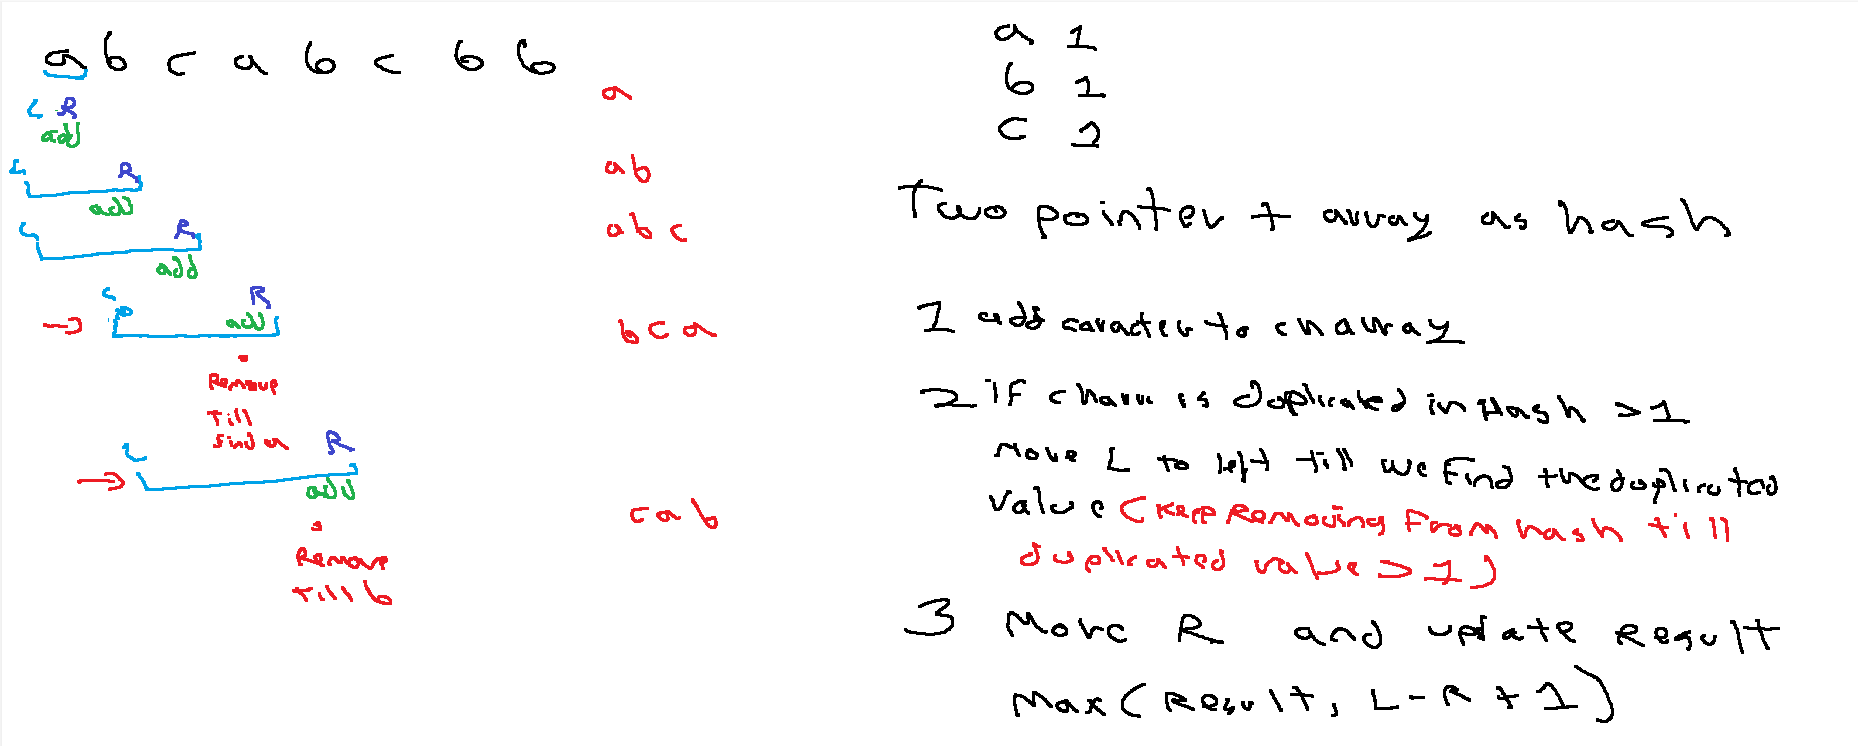 a b c a b c b b
L R
add
a
L R
add
ab
L R
add
abc
L R
add
bca
Remove
Till
find a
L R
add
cab
Remove
Till b
a 1
b 1
c 1
Two pointer + array as hash
1 add caracter to
2 if char is duplicated in Hash >1
Move L to left till we find the duplicated
value (Keep Removing From hash till
duplicated value > 1)
3 Move R and update Result
Max(Result, L-R+1)